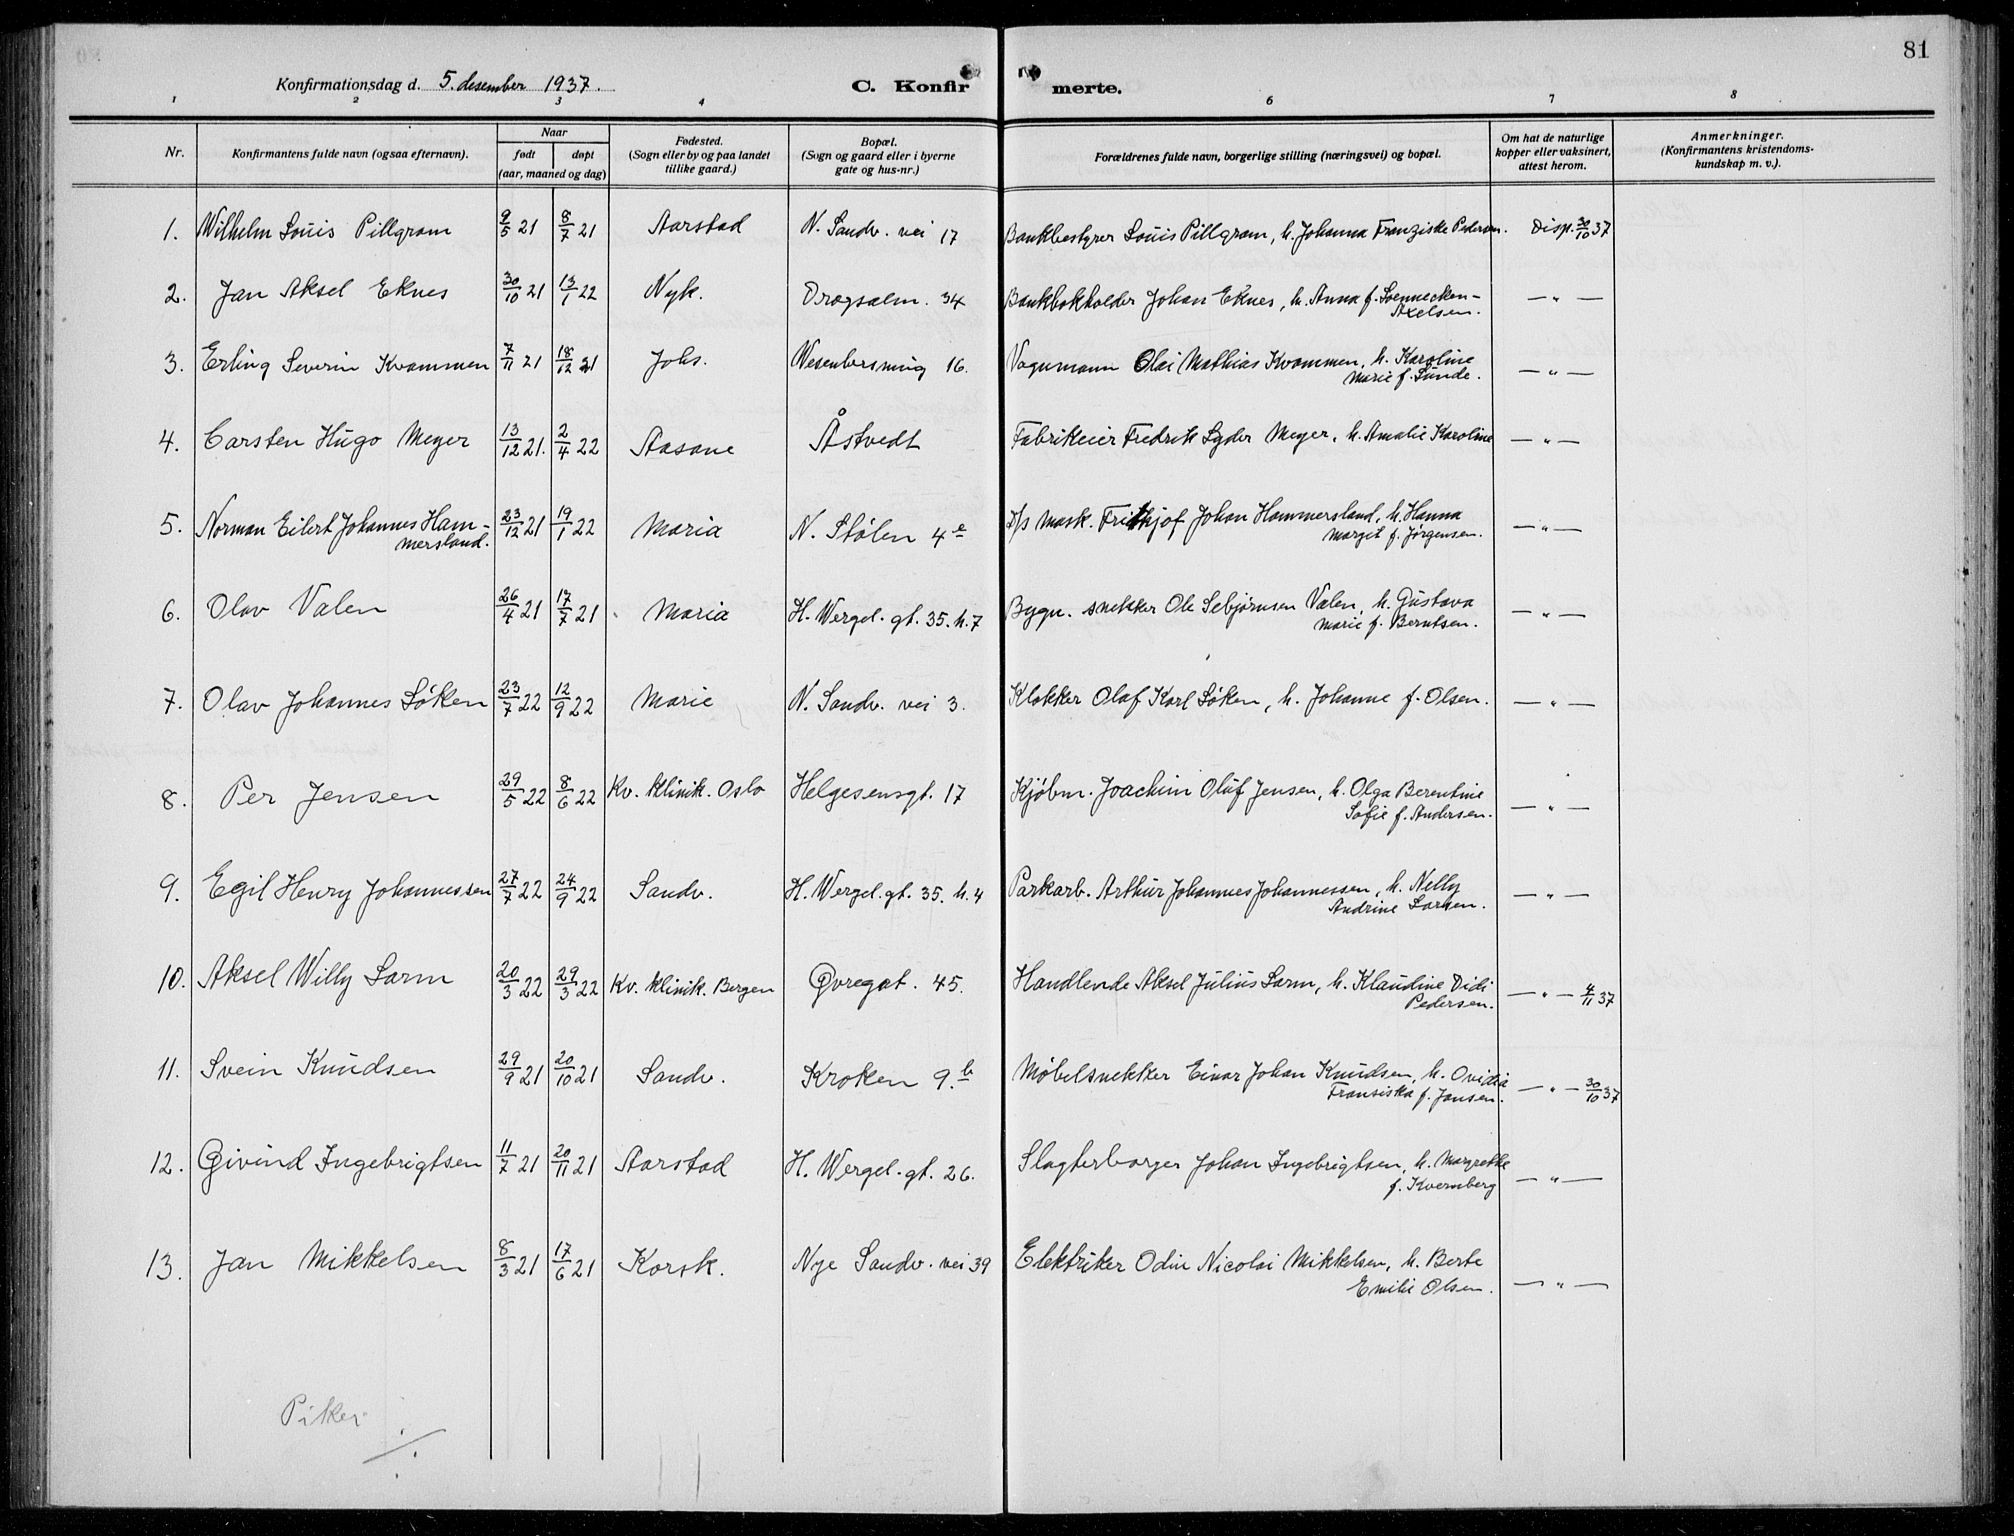 81
Konfirmationsdag d. 5. desember 1937.
C. Konfirmerte.
1 2 3 4 6 7 8
Nr.
Konfirmantens fulde navn (ogsaa efternavn).
Naar
født døpt
(aar, maaned og dag)
Fødested.
(Sogn eller by og paa landet
tillike gaard.)
Bopæl.
(Sogn og gaard eller i byerne
gate og hus-nr.)
Forældrenes fulde navn, borgerlige stilling (næringsvei) og bopæl.
Om hat de naturlige
kopper eller vaksinert,
attest herom.
Anmerkninger.
(Konfirmantens kristendoms-
kundskap m. v.).
1. Wilhelm Louis Pillgram 9/5 21 8/7 21 Aarstad N. Sandv. vei 17 Bankbestyrer Louis Pillgram, h. Johanna Franziska Pedersen. Disp. 30/10 37
2. Jan Aksel Eknes 30/10 21 13/1 22 Nyk. Dragsalm. 34 Bankbokholder Johan Eknes, h. Anna f. Soennecken-
Axelsen. — " —
3. Erling Severin Kvammen 7/11 21 18/12 21 Johs. Wesenbersmug 16. Vognmann Olai Mathias Kvammen, h. Karoline
Marie f. Sunde. — " —
4. Carsten Hugo Meyer 13/12 21. 2/4 22 Aasane Åstvedt Fabrikeier Fredrik Lyder Meyer, h. Amalie Karoline — " —
5. Norman Eilert Johannes Ham-
mersland. 23/12 21 19/1 22 Maria N. Stølen 4e I/s mask. Frithjof Johan Hammersland, h. Hanna
Margit f. Jørgensen. — " —
6. Olav Valen 26/4 21 17/7 21 Maria H. Wergel. gt. 35. h. 7 Bygn. snekker Ole Sebjørnsen Valen, h. Gustava
Marie f. Berntsen. — " —
7. Olav Johannes Løken 23/7 22 12/9 22 Marie N. Sandv. vei 3. Klokker Olaf Karl Løken, h. Johanne f. Olsen. — " —
8. Per Jensen 29/5 22 8/6 22 Kv. klinik. Oslo Helgesensgt. 17 Kjøbm. Joachim Oluf Jensen, h. Olga Berentine
Sofie f. Andersen. — " —
9. Egil Henry Johannessen 27/7 22 24/9 22 Sandv. H. Wergel. gt. 35. h. 4 Parkarb. Arthur Johannes Johannessen, h. Nelly
Andrine Larsen. — " —
10. Aksel Willy Larm 20/3 22 29/3 22 Kv. klinik. Bergen Øvregat. 45. Handlende Aksel Julius Larm, h. Klaudine Didi
Pedersen. — " — 4/11 37
11. Svein Knudsen 29/9 21 20/10 21 Sandv. Kroken 9. b Møbelsnekker Einar Johan Knudsen, h. Ovidia
Fransiska f. Jansen. — " — 30/10 37
12. Øivind Ingebrigtsen 11/7 21 20/11 21 Aarstad H. Wergel. gt. 26. Slagterborger Johan Ingebrigtsen, h. Margrethe
f. Kvernberg — " —
13. Jan Mikkelsen 8/3 21 17/6 21 Korsk. Nye Sandv. vei 39 Elektriker Odin Nicolai Mikkelsen, h. Berte
Emilie Olsen. — " —
Piker